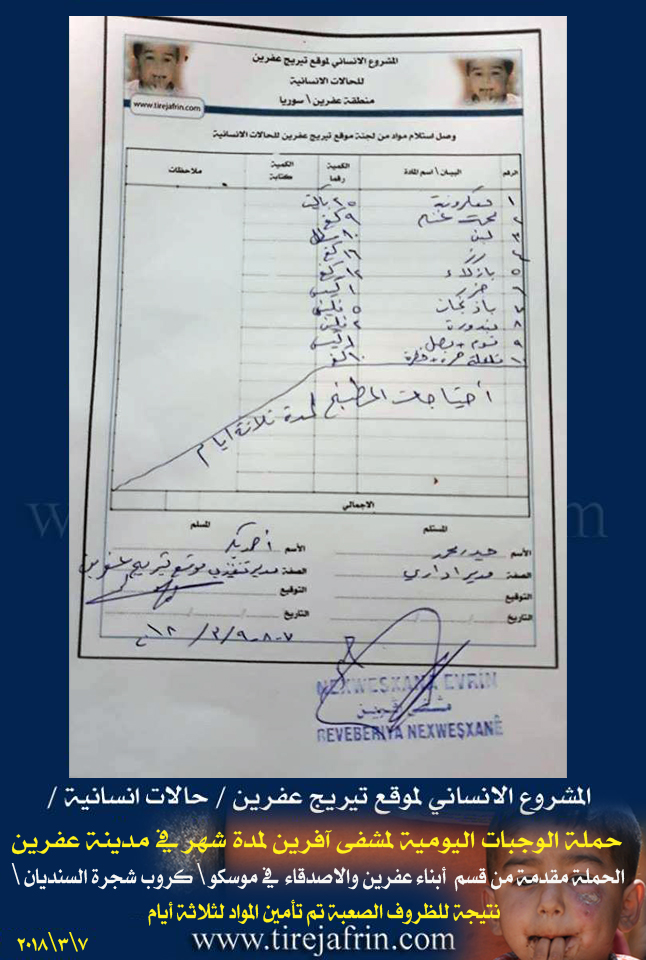 المشروع الانساني لموقع تيريج عفرين
للحالات الانسانية
منطقة عفرين \ سوريا
www.tirejafrin.com
وصل استلام مواد من لجنة موقع تيريج عفرين للحالات الانسانية
الرقم البيان \ اسم المادة الكمية رقما الكمية كتابة ملاحظات
١ معكرونة ٢٥ باكيت
٢ ٩ كغ
٣ لبن ١٠ سطل
٤ رز
٥ بازلاء ١٢ كغ
٦ جزر ١ كيس
٧ باذنجان ٥
٨ بندورة ٢
٩ ثوم + بصل كيس
١٠ فليفلة حمرة + خضرة ١٠ كغ
أحتياجات المطبخ لمدة ثلاثة ايام
الاجمالي
المستلم المسلم
الأسم حيدر محمد الأسم أحمد بكر
الصفة مدير اداري الصفة مدير تنفيذي موقع تيريج عفرين
التوقيع التوقيع
التاريخ التاريخ
NEXWEŞXANA EVRÎN
مشفى آفرين
REVEBERIYA NEXWEŞXANÊ
المشروع الانساني لموقع تيريج عفرين / حالات انسانية /
حملة الوجبات اليومية لمشفى آفرين لمدة شهر في مدينة عفرين
الحملة مقدمة من قسم أبناء عفرين والاصدقاء في موسكو \ كروب شجرة السنديان \
نتيجة للظروف الصعبة تم تأمين المواد لثلاثة أيام
٢٠١٨\٣\٧
www.tirejafrin.com